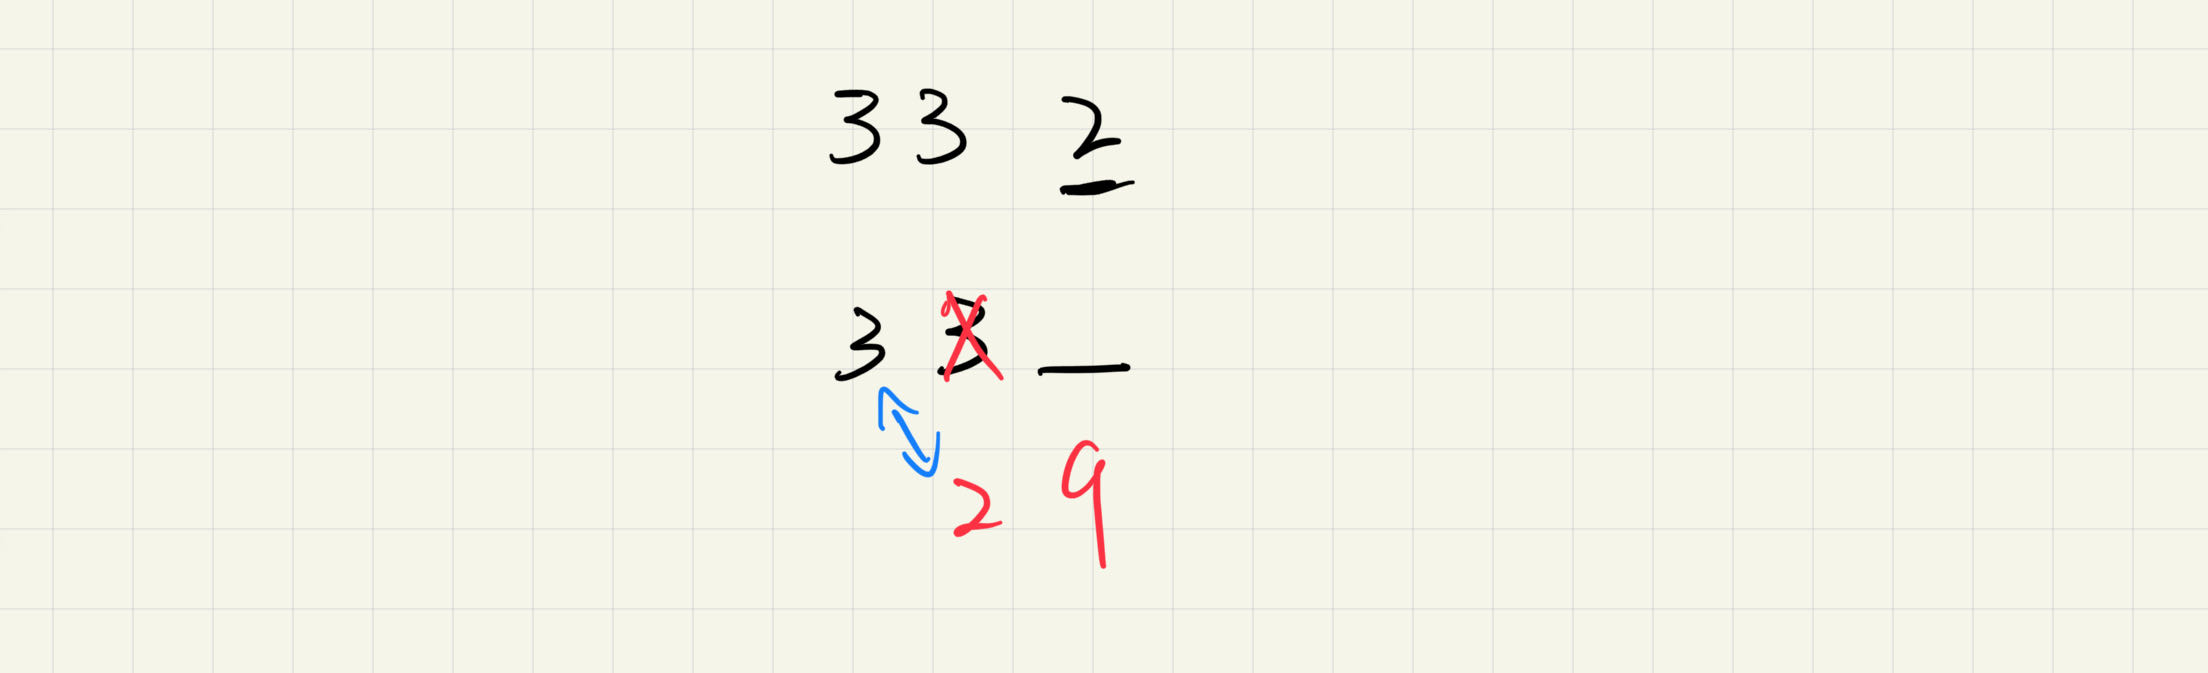 33 2
3 3
2 9